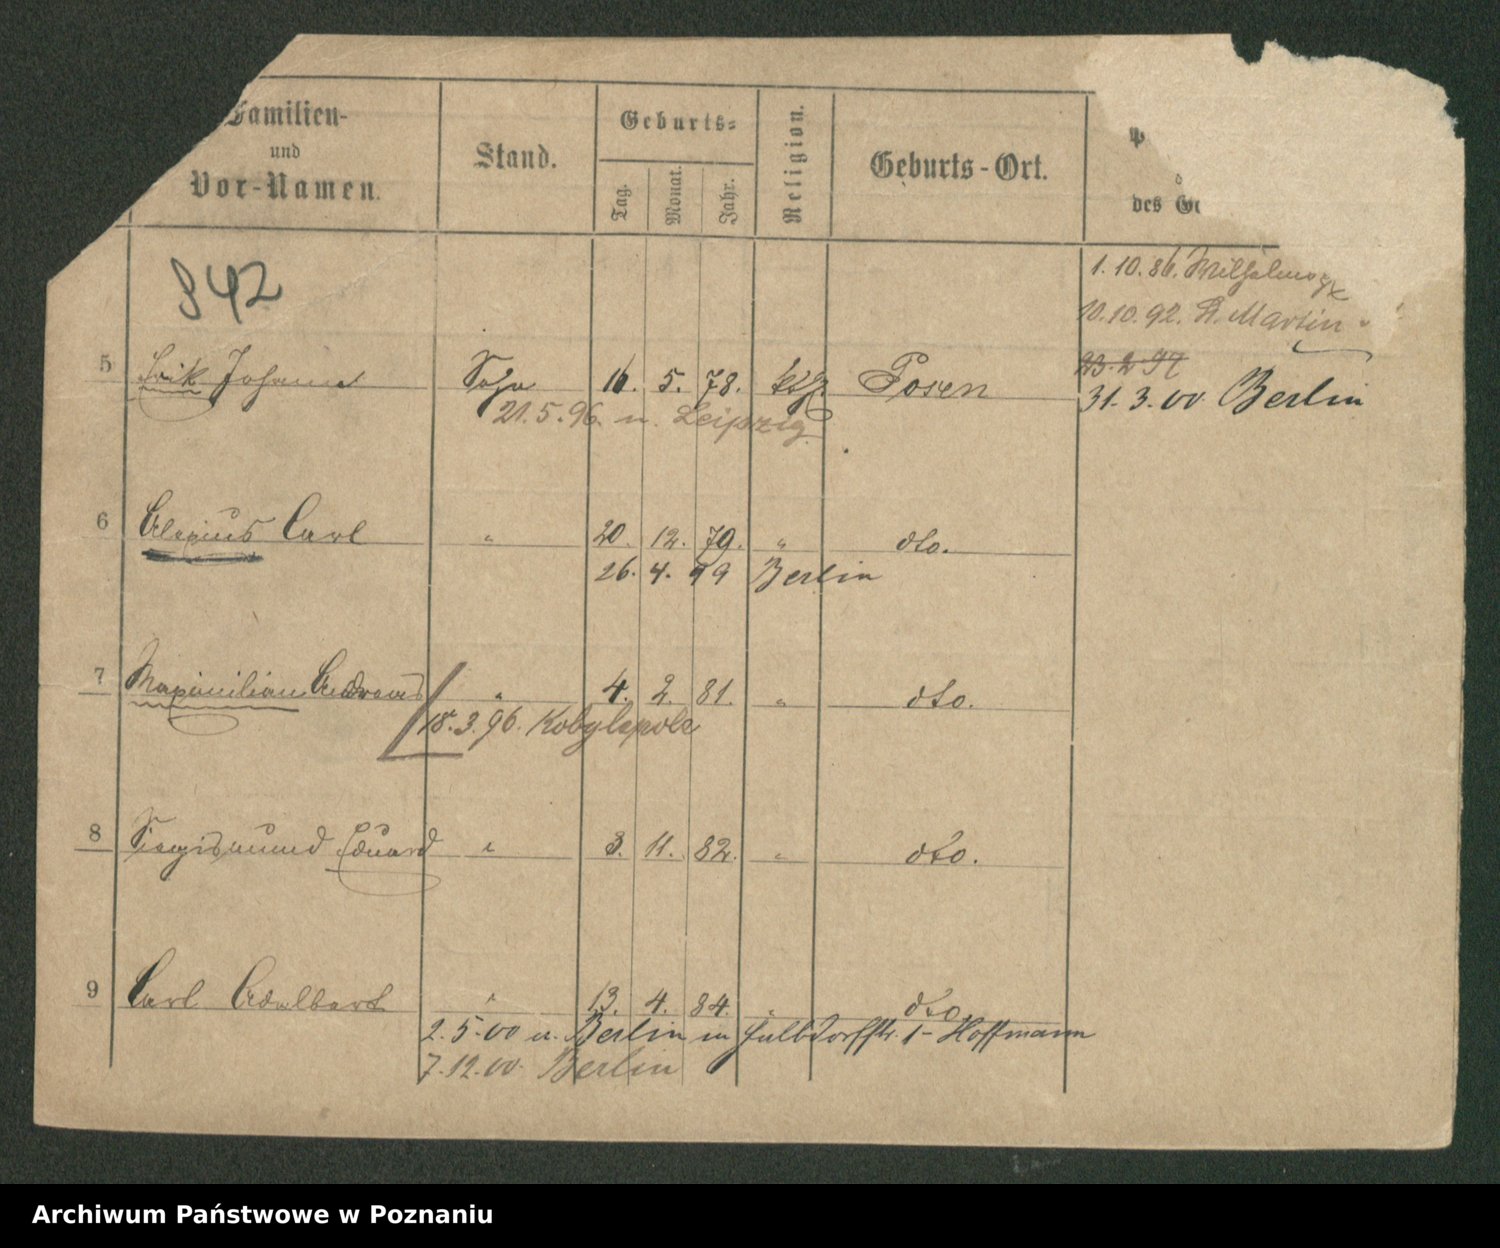 Familien-
und
Vor-Namen.
Stand.
Geburts-
Tag.
Monat.
Jahr.
Religion.
Geburts-Ort.
des
842
1. 10. 86. Wilhelms
10. 10. 92. St. Martin
23. 2. 97
31. 3. 00 Berlin
5 Erik Johann Sohn 16. 5. 78. kth. Posen
21. 5. 96. n. Leipzig
6 Alexius Carl " 20. 12. 79. " dto.
26. 4. 99 Berlin
7 Maximilian Andreas " 4. 2. 81. " dto.
18. 3. 96. Kobylepole
8 Siegismund Eduard " 3. 11. 82. " dto.
9 Carl Adalbert " 13. 4. 84. " dto.
2. 5. 00 n. Berlin Hoffmann
7. 12. 00 Berlin
Archiwum Państwowe w Poznaniu